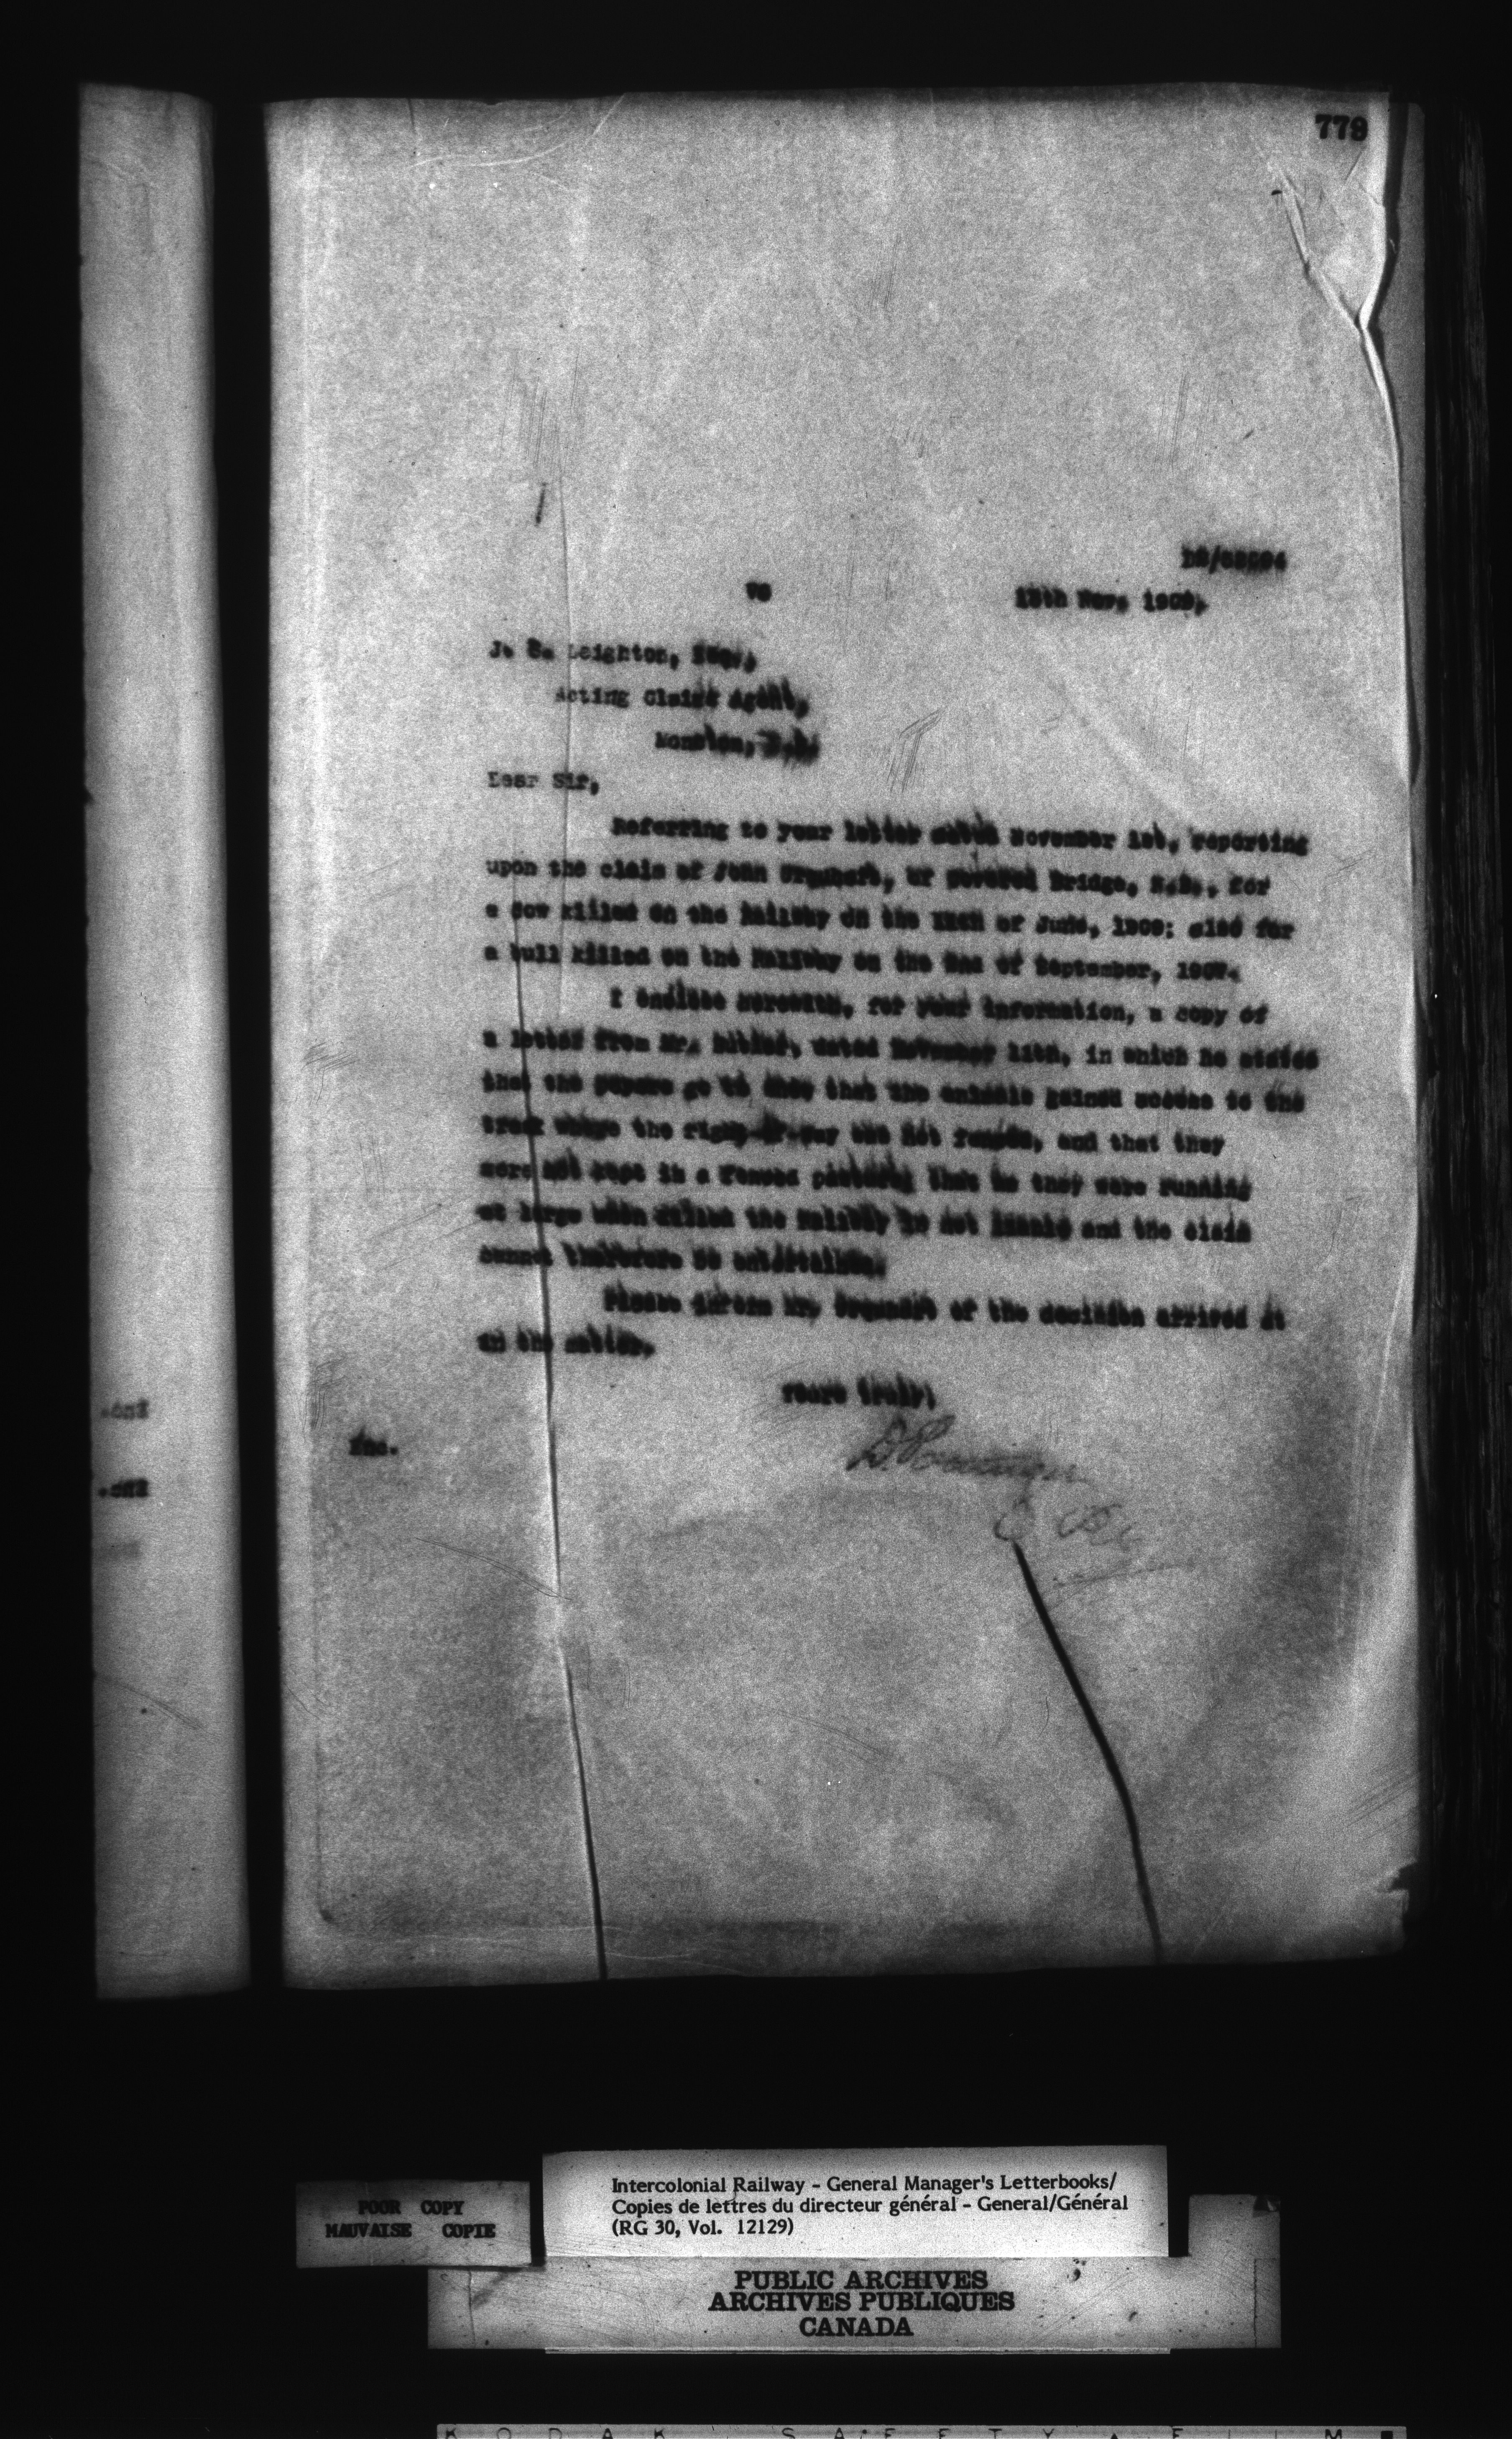 779
VG
13th Nov. 1909,
J. S. Leighton, Esq.,
Acting Claims Agent,
Moncton, N.B.
Dear Sir,
Referring to your letter dated November 1st, reporting
upon the claim of John Urquhart, of Covered Bridge, N.B., for
a cow killed on the Railway on the of June, 1909; also for
a bull killed on the Railway on the 2nd of September, 1907.
I enclose herewith, for your information, a copy of
a letter from Mr. dated November 11th, in which he states
that the papers go to show that the animals gained access to the
track where the right-of-way was not fenced, and that they
were not kept in a fenced pasture; that as they were running
at large when killed the Railway is not liable and the claim
cannot therefore be entertained.
Please inform Mr. Urquhart of the decision arrived at
in the matter.
Yours truly,
Enc.
D. Pottinger
Enc.
Enc.
POOR COPY
MAUVAISE COPIE
Intercolonial Railway - General Manager's Letterbooks/
Copies de lettres du directeur général - General/Général
(RG 30, Vol. 12129)
PUBLIC ARCHIVES
ARCHIVES PUBLIQUES
CANADA
KODAK SAFETY FILM